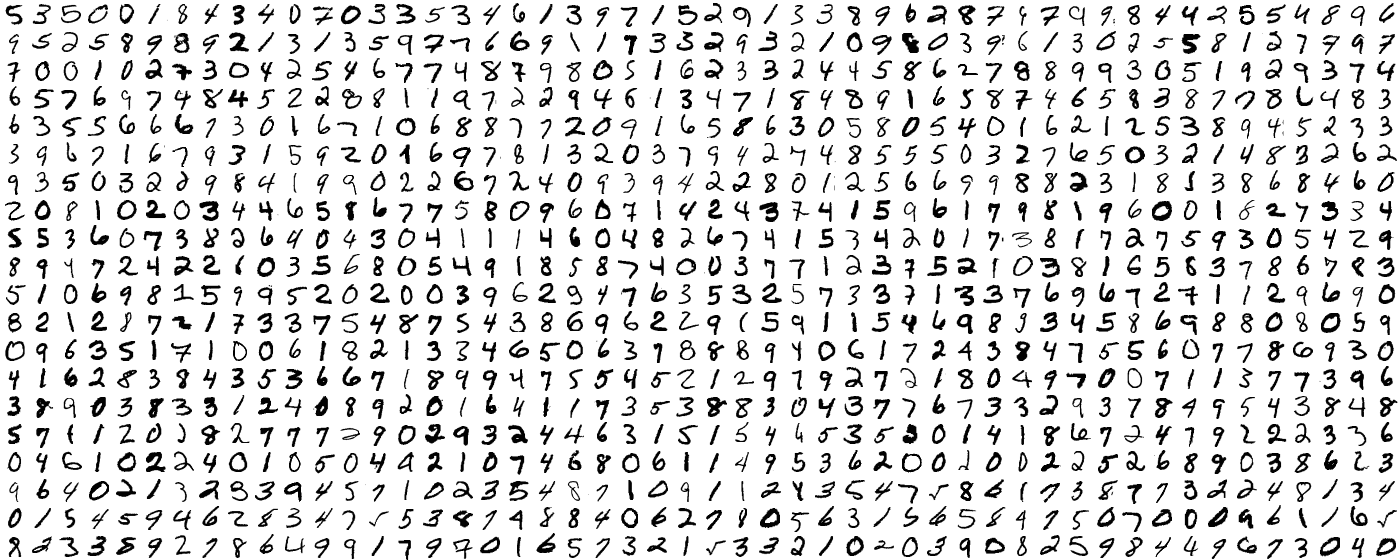 5 3 5 0 0 1 8 4 3 4 0 7 0 3 3 5 3 4 6 1 3 9 7 1 5 2 9 1 3 3 8 9 6 2 8 7 9 7 9 9 8 4 4 2 5 5 4 8 9 6
9 5 2 5 8 9 8 9 2 1 3 1 3 5 9 7 7 6 6 9 1 1 7 3 3 2 9 3 2 1 0 9 8 0 3 9 6 1 3 0 2 5 5 8 1 2 7 9 9 7
7 0 0 1 0 2 7 3 0 4 2 5 4 6 7 7 4 8 7 9 8 0 5 1 6 2 3 3 2 4 4 5 8 6 2 7 8 8 9 9 3 0 5 1 9 2 9 3 7 4
6 5 7 6 9 7 4 8 4 5 2 2 2 8 8 1 1 9 7 2 2 9 4 6 1 3 4 7 1 8 4 8 9 1 6 5 8 7 4 6 5 8 3 8 7 7 8 6 4 8 3
6 3 5 5 6 6 6 7 3 0 1 6 7 1 0 6 8 8 7 7 2 0 9 1 6 5 8 6 3 0 5 8 0 5 4 0 1 6 2 1 2 5 3 8 9 4 5 2 3 3
3 9 6 7 1 6 7 9 3 1 5 9 2 0 1 6 9 7 8 1 3 2 0 3 7 9 4 2 7 4 8 5 5 5 0 3 2 7 6 5 0 3 2 1 4 8 3 2 6 2
9 3 5 0 3 2 2 9 8 4 1 9 9 0 2 2 6 7 2 4 0 9 3 9 4 2 2 8 0 1 2 5 6 6 9 9 8 8 2 3 1 8 5 3 8 6 8 4 6 0
2 0 8 1 0 2 0 3 4 4 6 5 8 6 7 7 5 8 0 9 6 0 7 1 4 2 4 3 7 4 1 5 9 6 1 7 9 8 1 9 6 0 0 1 8 2 7 3 3 4
5 5 3 6 0 7 3 8 2 6 4 0 4 3 0 4 1 1 1 4 6 0 4 8 2 6 7 4 1 5 3 4 2 0 1 7 3 8 1 7 2 7 5 9 3 0 5 4 2 9
8 9 4 7 2 4 2 2 6 0 3 5 6 8 0 5 4 9 1 8 5 8 7 4 0 0 3 7 7 1 2 3 7 5 2 1 0 3 8 1 6 5 6 3 7 8 6 7 8 3
5 1 0 6 9 8 1 5 9 9 5 2 0 2 0 0 3 9 6 2 9 4 7 6 3 5 3 2 5 7 3 3 7 1 3 3 7 6 9 6 7 2 7 1 1 2 9 6 9 0
8 2 1 2 8 7 2 1 7 3 3 7 5 4 8 7 5 4 3 8 6 9 6 2 2 9 1 5 9 1 1 5 4 6 9 8 9 3 4 5 8 6 9 8 8 0 8 0 5 9
0 9 6 3 5 1 7 1 0 0 6 1 8 2 1 3 3 4 6 5 0 6 3 7 8 8 8 9 4 0 6 1 7 2 4 3 8 4 7 5 5 6 0 7 7 8 6 9 3 0
4 1 6 2 8 3 8 4 3 5 3 6 6 7 1 8 9 9 4 7 5 5 4 5 2 1 2 9 7 9 2 7 2 1 8 0 4 9 7 0 0 7 1 1 3 7 7 3 9 6
3 8 9 0 3 8 3 3 1 2 4 0 8 9 2 0 1 6 4 1 1 7 3 5 3 8 8 3 0 4 3 7 7 6 7 3 3 2 9 3 7 8 4 9 5 4 3 8 4 8
5 7 1 1 2 0 2 8 2 7 7 7 2 9 0 2 9 3 2 4 4 6 3 1 5 1 5 4 6 5 3 5 3 0 1 4 1 8 6 7 2 4 7 9 2 2 2 3 3 6
0 4 6 1 0 2 2 4 0 1 0 5 0 4 4 2 1 0 7 4 6 8 0 6 1 1 4 9 5 3 6 2 0 0 2 0 0 2 2 5 2 6 8 9 0 3 8 6 2 3
9 6 4 0 2 1 3 2 8 3 9 4 5 7 1 0 2 3 5 4 8 7 1 0 9 1 1 2 4 3 5 4 7 5 8 6 1 7 3 8 7 7 3 2 2 4 8 1 3 4
0 1 5 4 5 9 4 4 6 2 8 3 4 7 5 5 3 8 7 9 8 8 4 0 6 2 7 8 0 5 6 3 1 5 6 5 8 9 7 5 0 7 0 0 0 9 6 1 1 6 5
8 2 3 3 8 9 2 7 8 6 4 9 9 1 7 9 7 0 1 6 5 7 3 2 1 5 3 3 2 1 0 2 0 3 9 0 8 2 5 9 8 4 4 9 6 7 3 0 4 0